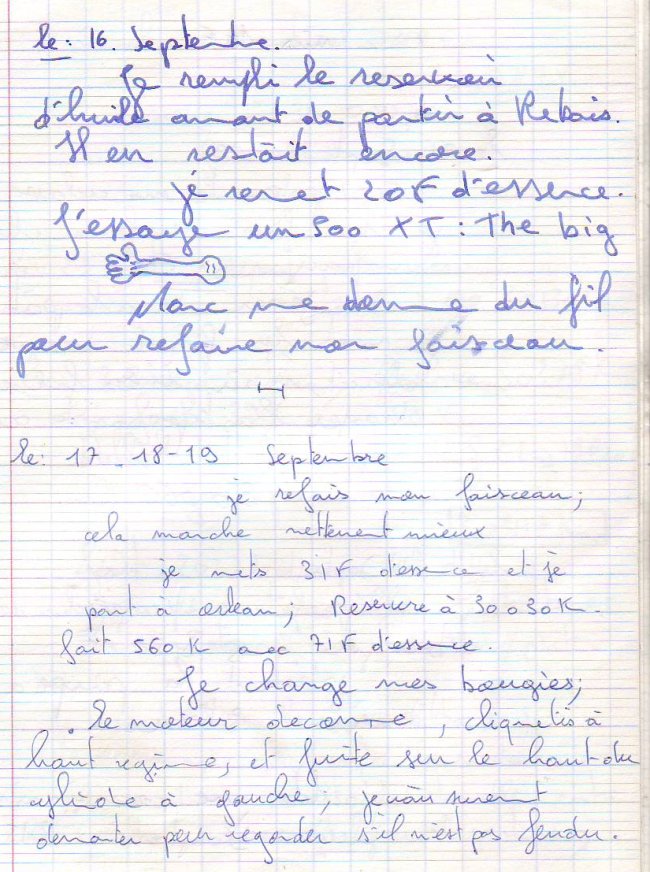 le : 16. Septembre.
Je rempli le reservoir
d'huile avant de partir à Rebais.
Il en restait encore.
je remet 20F d'essence.
J'essaye un 500 XT : The big
Marc me donne du fil
pour refaire mon faisceau.
le : 17 - 18 - 19 Septembre
je refais mon faisceau ;
cela marche nettement mieux
je mets 31F d'essence et je
part à orlean ; Reserve à 30030K.
fait 560K avec 71F d'essence.
Je change mes bougies ;
. le moteur deconne, cliquetis à
haut regime, et fuite sur le haut du
cylindre à gauche ; je vais surement
demonter pour regarder s'il n'est pas fendu.